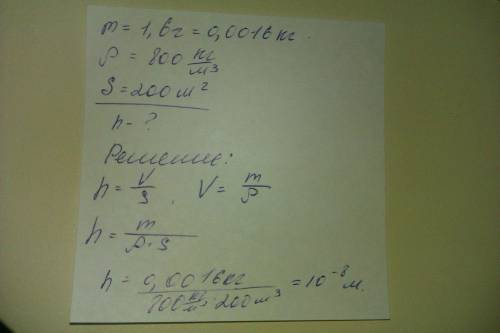 m = 1,6г = 0,0016 кг.
ρ = 800 кг/м³
S = 200 м²
h - ?
Решение:
h = V/S, V = m/ρ
h = m/ρ·S
h = 0,0016 кг/800 кг/м³ · 200 м³ = 10⁻⁸ м.